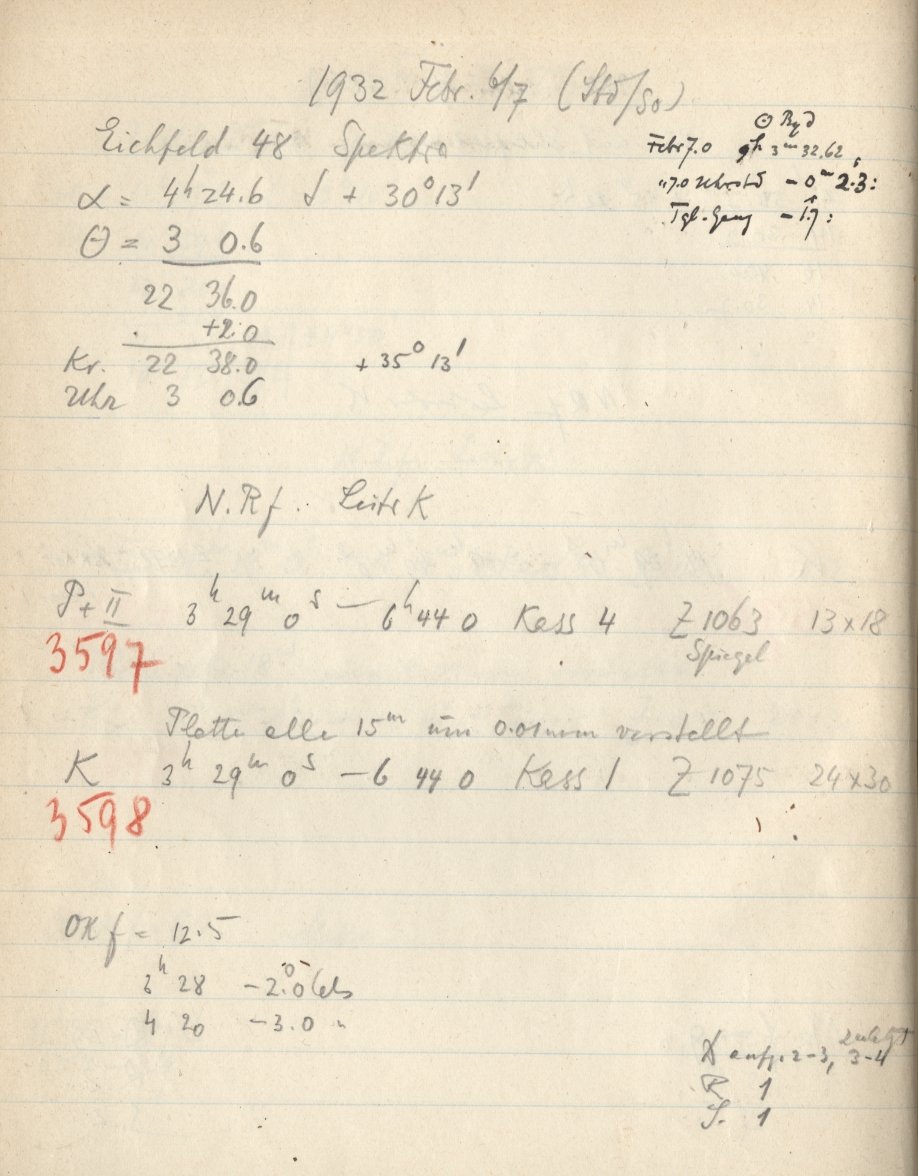 1932 Febr. 6/7 (Std/So)
Eichfeld 48 Spektra
α = 4h 24.6 δ + 30° 13'
Θ = 3 0.6
22 36.0
+2.0
Kr. 22 38.0 + 35° 13'
Uhr 3 0.6
Febr 7.0 3m 32.62
"7.0 Uhrstd − 0m 2.3:
Tgl. Gang − 1.7:
N.Rf. Leitr K
P + II 3h 29m 0s — 6h 44 0 Kass 4 Z 1063 13 x 18
Spiegel
3597
Platte alle 15m um 0.01mm verstellt
K 3h 29m 0s — 6 44 0 Kass 1 Z 1075 24 x 30
3598
OK f = 12.5
3h 28 −2.0° Cels
4 20 −3.0 "
anf. 2-3, zuletzt 3-4
R 1
S. 1